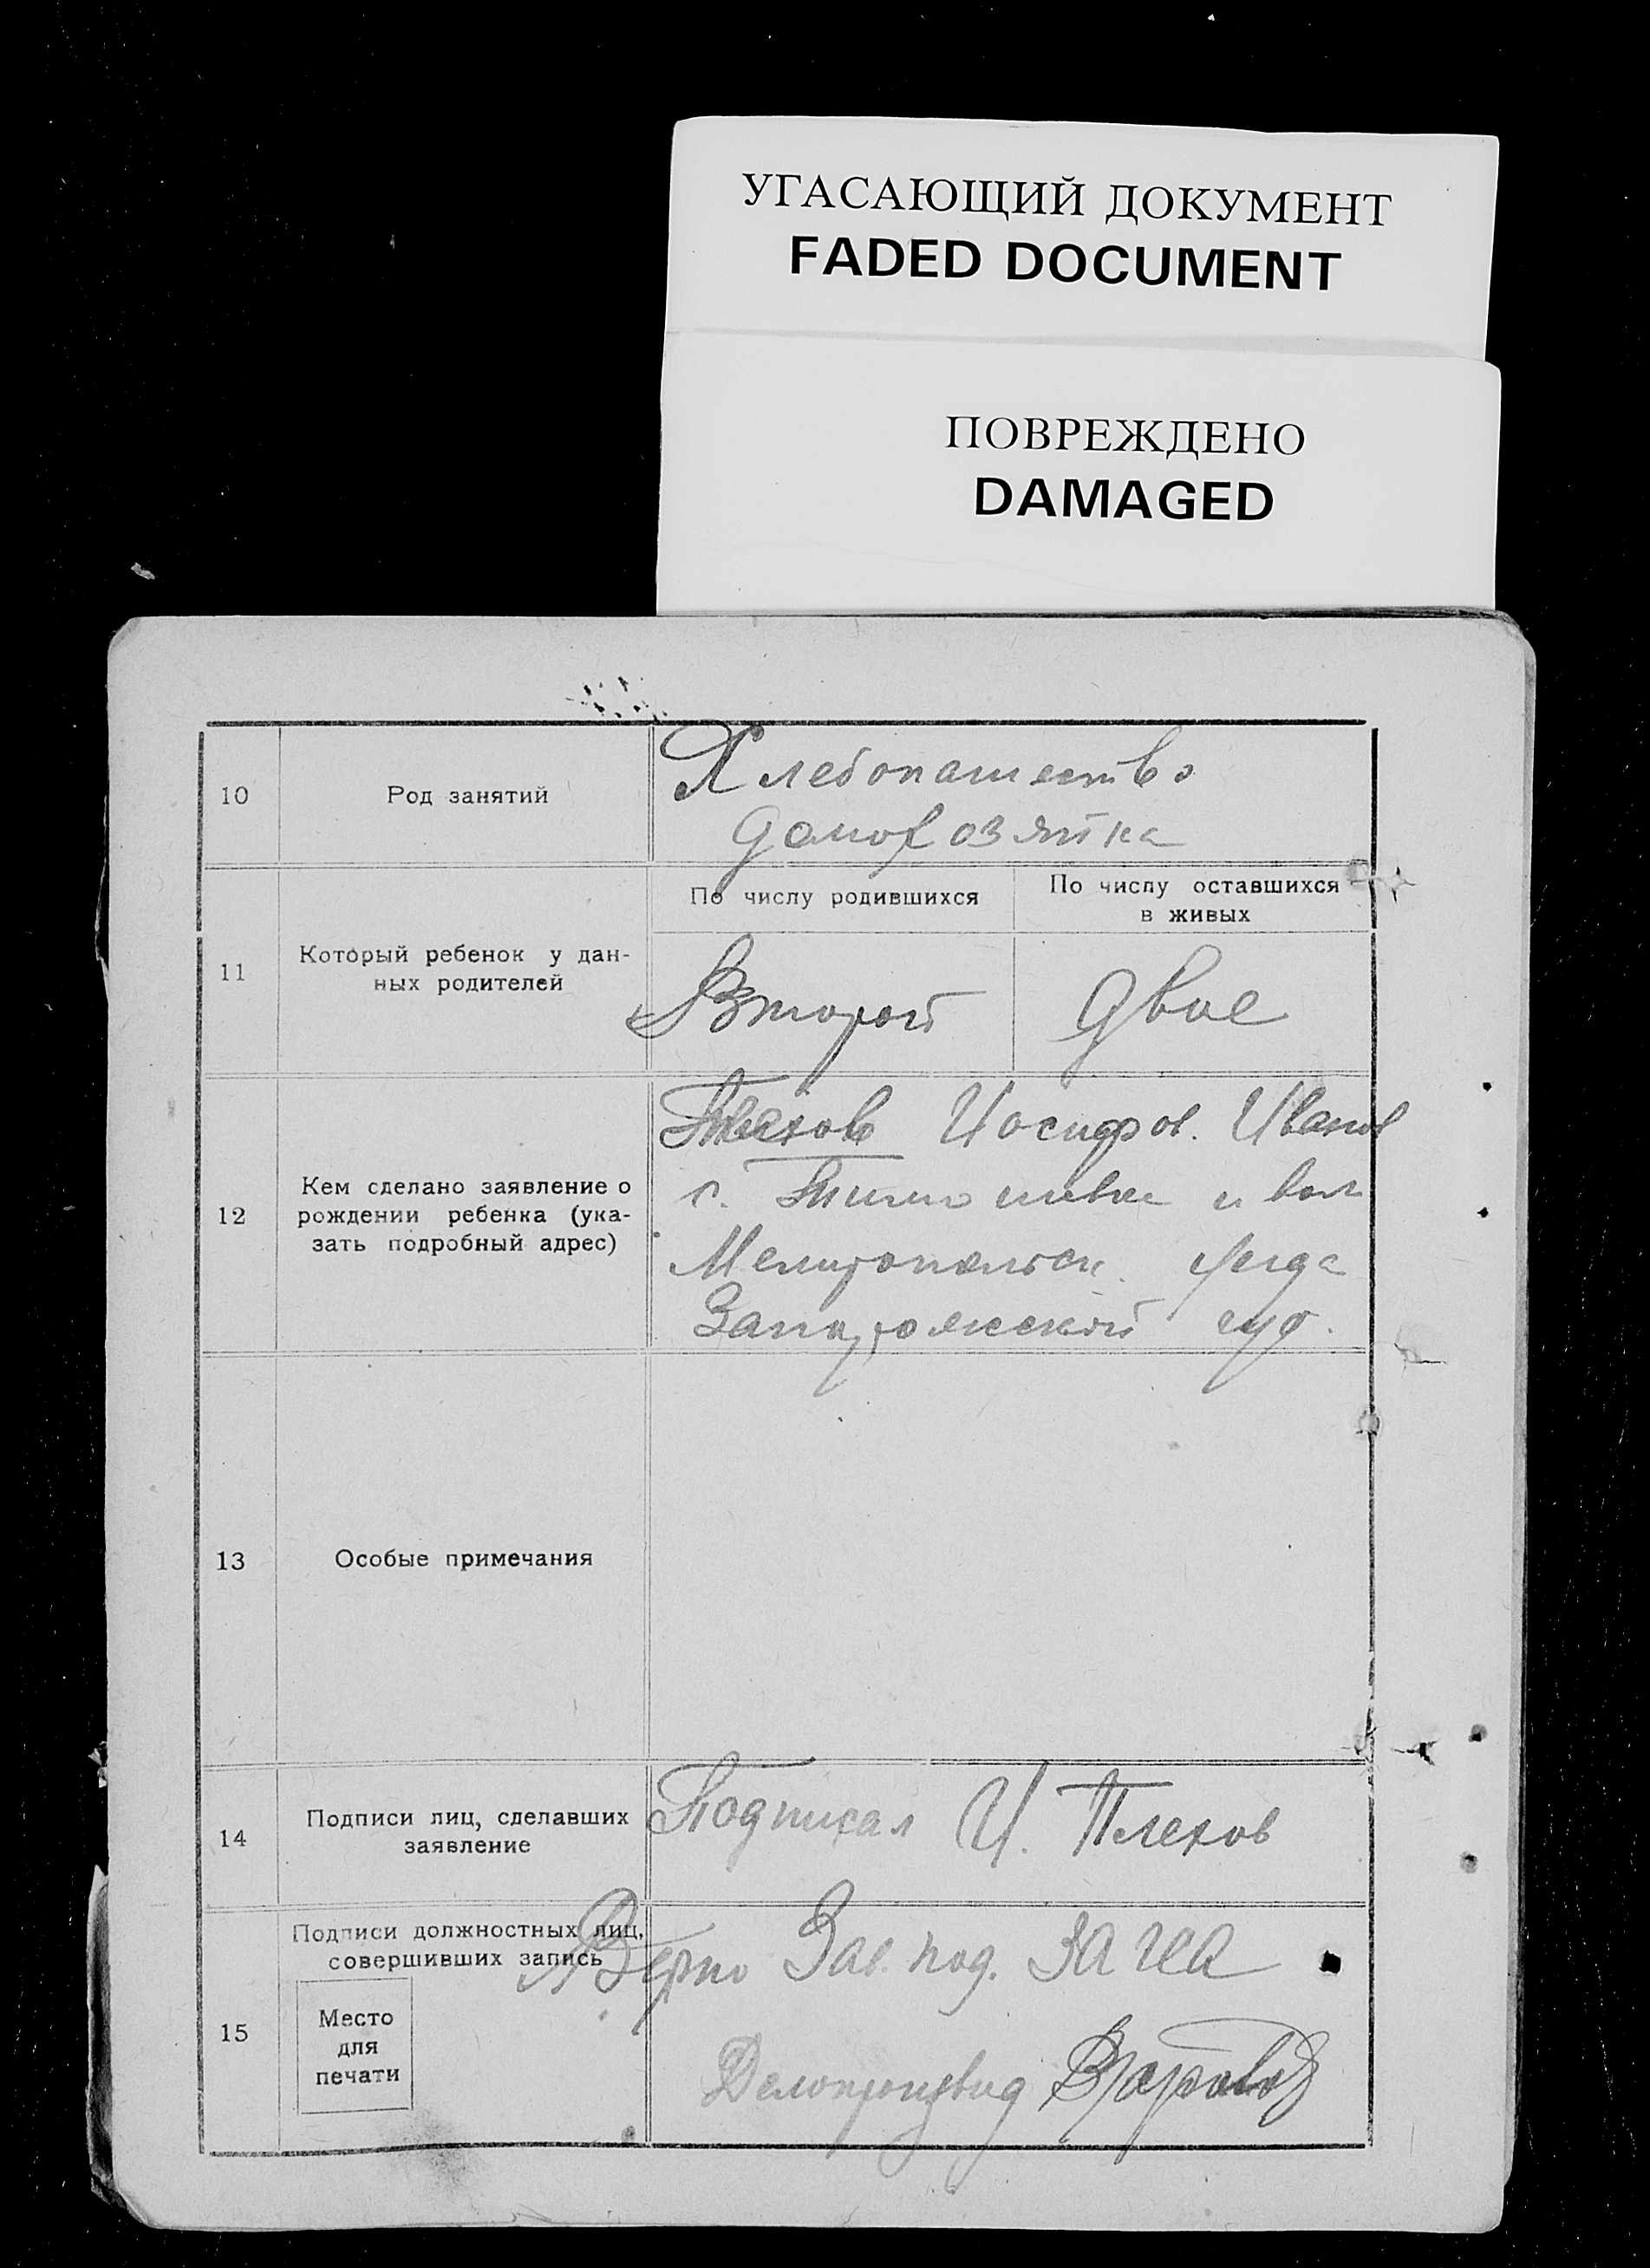 УГАСАЮЩИЙ ДОКУМЕНТ
FADED DOCUMENT
ПОВРЕЖДЕНО
DAMAGED
10
Род занятий
Хлебопашество
домохозяйка
11
Который ребенок у дан-
ных родителей
По числу родившихся
Второй
По числу оставшихся
в живых
двое
12
Кем сделано заявление о
рождении ребенка (ука-
зать подробный адрес)
Плехов Иосифов. Иванов
с. Тимошевке и вол
Мелитопольск. уезда
Запорожской губ.
13
Особые примечания
14
Подписи лиц, сделавших
заявление
Подписал И. Плехов
15
Подписи должностных лиц,
совершивших запись
Место
для
печати
Верно Зав. под. ЗАГСА
Делопроизвод